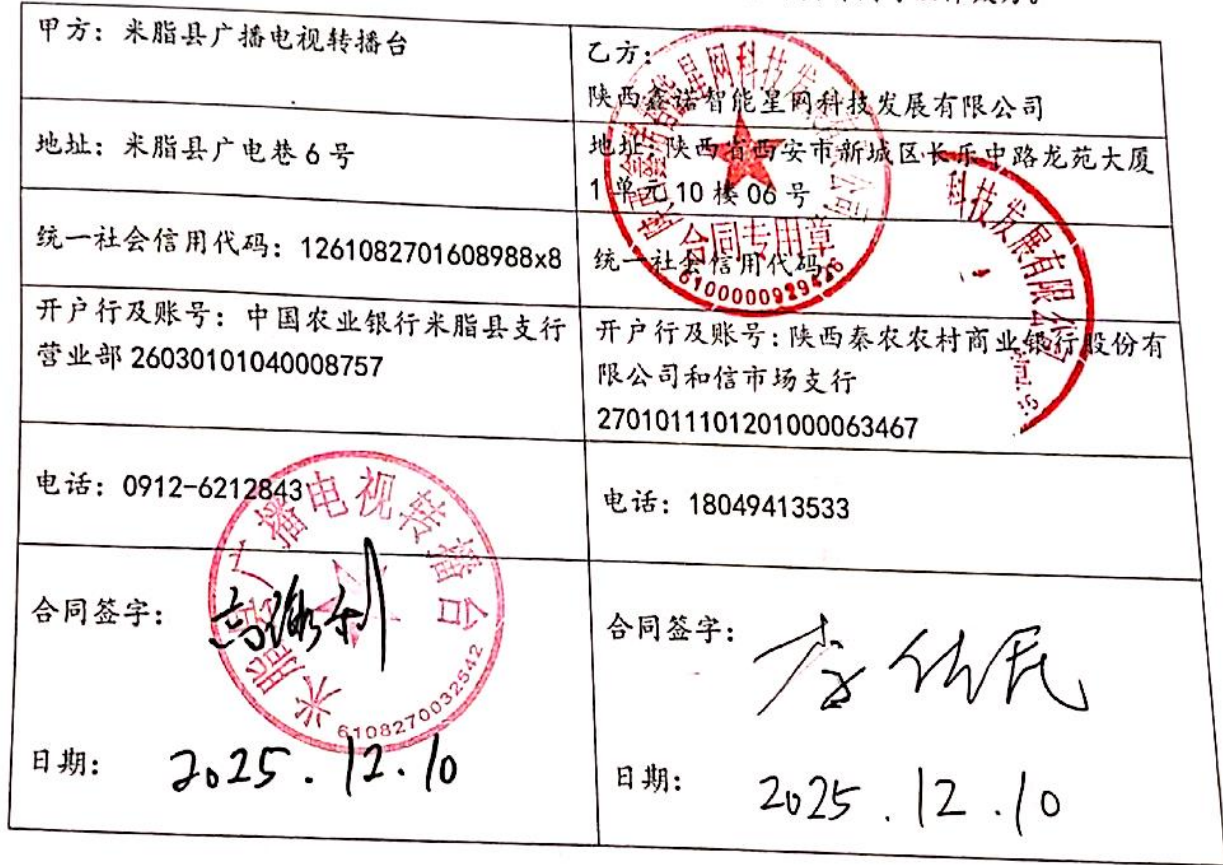 甲方：米脂县广播电视转播台
乙方：
陕西鑫诺智能星网科技发展有限公司
地址：米脂县广电巷6号
地址：陕西省西安市新城区长乐中路龙苑大厦
1单元10楼06号
统一社会信用代码：1261082701608988x8
统一社会信用代码：
开户行及账号：中国农业银行米脂县支行
营业部 26030101040008757
开户行及账号：陕西秦农农村商业银行股份有
限公司和信市场支行
2701011101201000063467
电话：0912-6212843
电话：18049413533
合同签字：
日期：2025.12.10
合同签字：
日期：2025.12.10
陕西鑫诺智能星网科技发展有限公司
合同专用章
6100000929426
科技发展有限公司
米脂县广播电视转播台
6108270032542